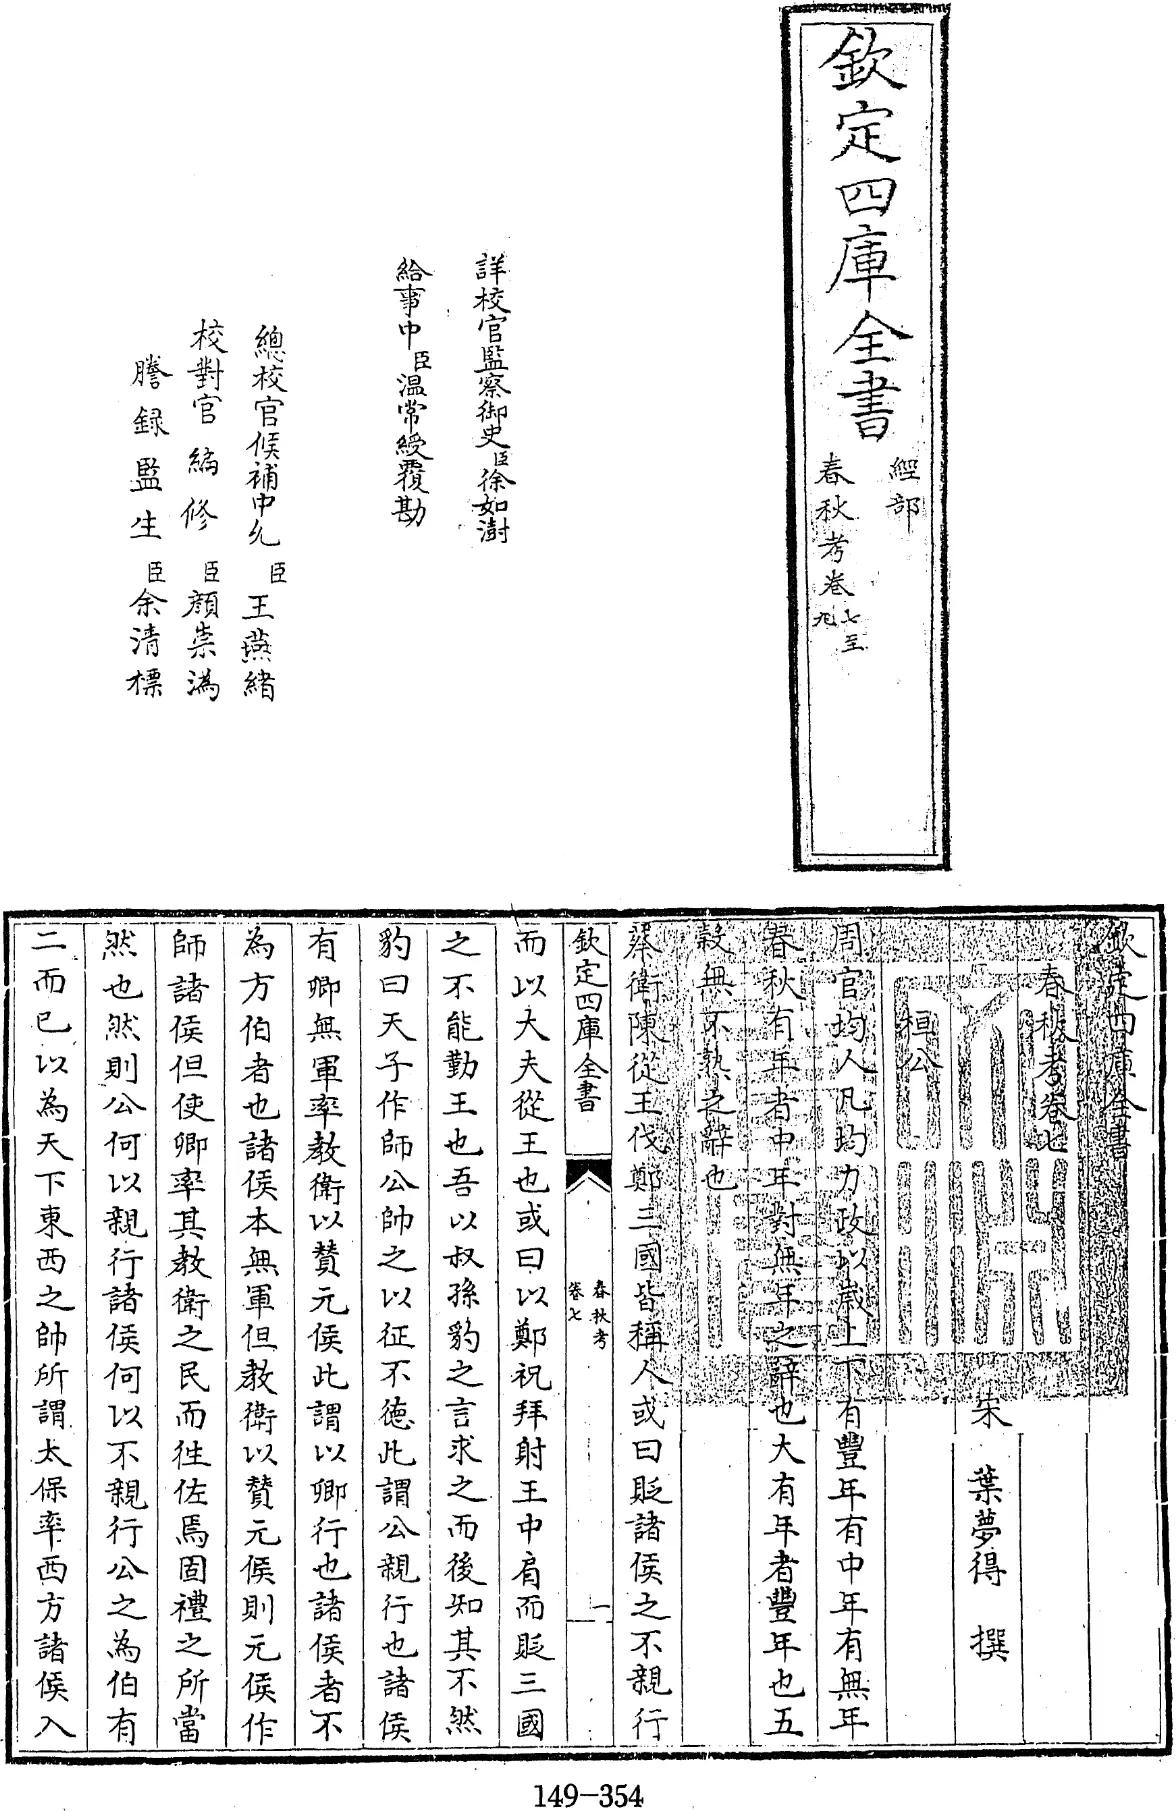 欽定四庫全書
經部
春秋考卷七至九
詳校官監察御史臣徐如澍
給事中臣温常綬覆勘
總校官候補中允臣王燕緒
校對官編修臣顏崇溈
謄録監生臣余清標
欽定四庫全書
春秋考卷七
宋 葉夢得 撰
桓公
周官均人凡均力政以歲上下有豐年有中年有無年
春秋有年者中年對無年之辭也大有年者豐年也五
穀無不熟之辭也
蔡衛陳從王伐鄭三國皆稱人或曰貶諸侯之不親行
欽定四庫全書
春秋考
卷七
一
而以大夫從王也或曰以鄭祝拜射王中肩而貶三國
之不能勤王也吾以叔孫豹之言求之而後知其不然
豹曰天子作師公帥之以征不德此謂公親行也諸侯
有卿無軍率教衛以贊元侯此謂以卿行也諸侯者不
為方伯者也諸侯本無軍但教衛以贊元侯則元侯作
師諸侯但使卿率其教衛之民而往佐焉固禮之所當
然也然則公何以親行諸侯何以不親行公之為伯有
二而已以為天下東西之帥所謂太保率西方諸侯入
149-354